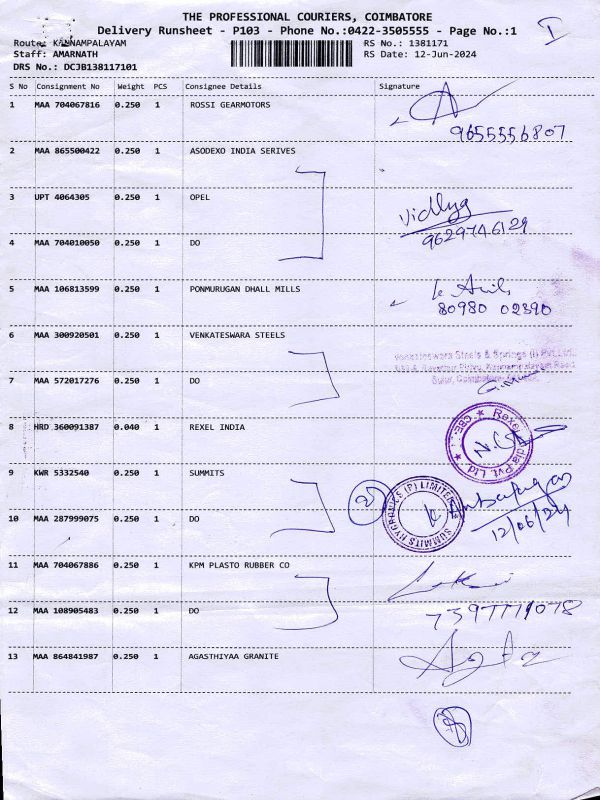 THE PROFESSIONAL COURIERS, COIMBATORE
Delivery Runsheet - P103 - Phone No.:0422-3505555 - Page No.:1
I
Route: KANNAMPALAYAM
Staff: AMARNATH
DRS No.: DCJB138117101
RS No.: 1381171
RS Date: 12-Jun-2024
S No Consignment No Weight PCS Consignee Details Signature
1 MAA 704067816 0.250 1 ROSSI GEARMOTORS
9655556807
2 MAA 865500422 0.250 1 ASODEXO INDIA SERIVES
3 UPT 4064305 0.250 1 OPEL
Vidhya
9629746129
4 MAA 704010050 0.250 1 DO
5 MAA 106813599 0.250 1 PONMURUGAN DHALL MILLS
80980 02390
6 MAA 300920501 0.250 1 VENKATESWARA STEELS
Venkateswara Steels & Springs (I) Pvt. Ltd.
7 MAA 572017276 0.250 1 DO
8 HRD 360091387 0.040 1 REXEL INDIA
Rexel India Pvt Ltd ★ CBE ★
9 KWR 5332540 0.250 1 SUMMITS
SUMMITS HYGRANICS (P) LIMITED
12/06/24
10 MAA 287999075 0.250 1 DO
11 MAA 704067886 0.250 1 KPM PLASTO RUBBER CO
12 MAA 108905483 0.250 1 DO
7397771078
13 MAA 864841987 0.250 1 AGASTHIYAA GRANITE